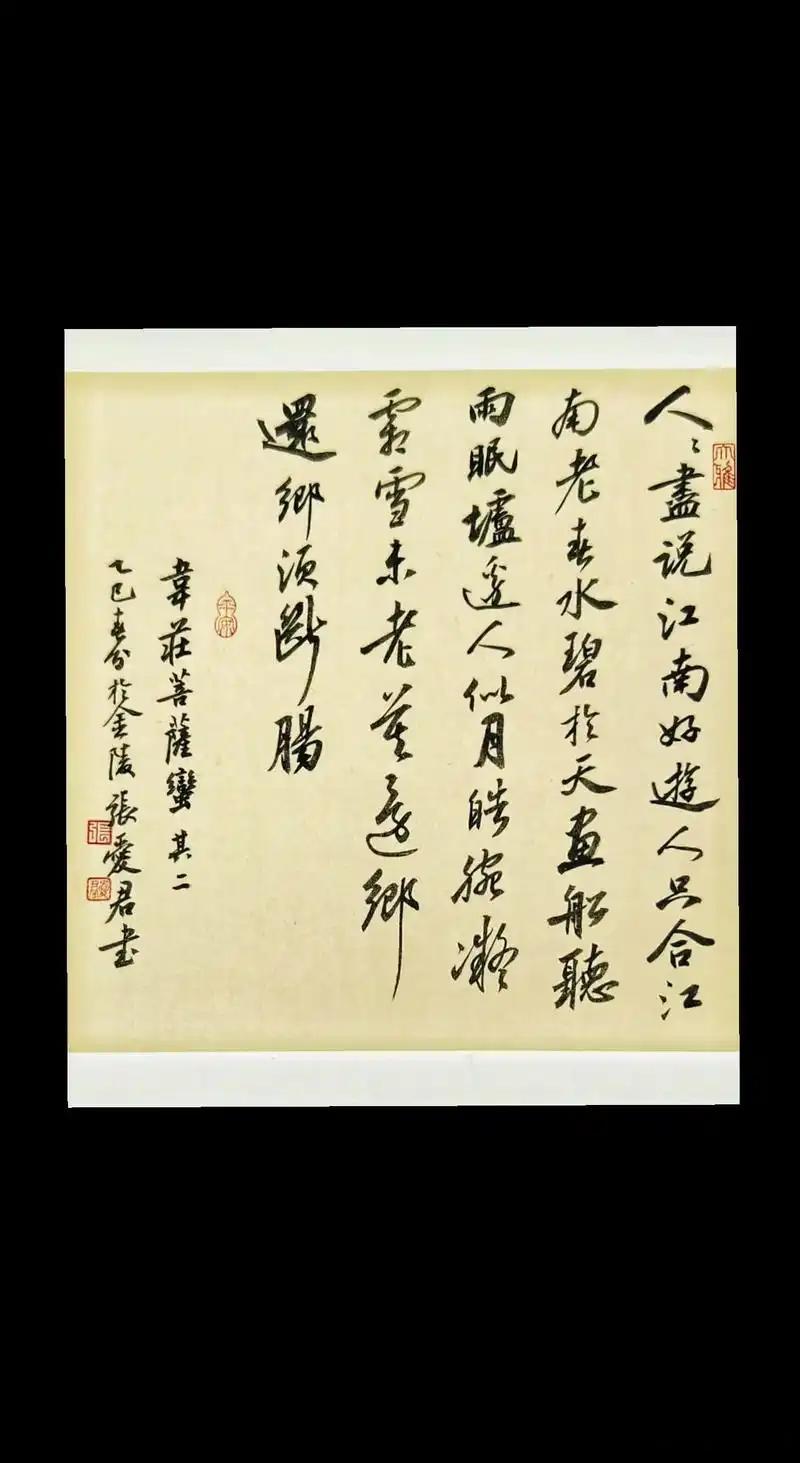 人〻盡说江南好遊人只合江
南老春水碧於天畫船聽
雨眠壚邊人似月皓腕凝
霜雪未老莫還鄉
還鄉須斷腸
韋莊菩薩蠻其二
乙巳春分於金陵張愛君书